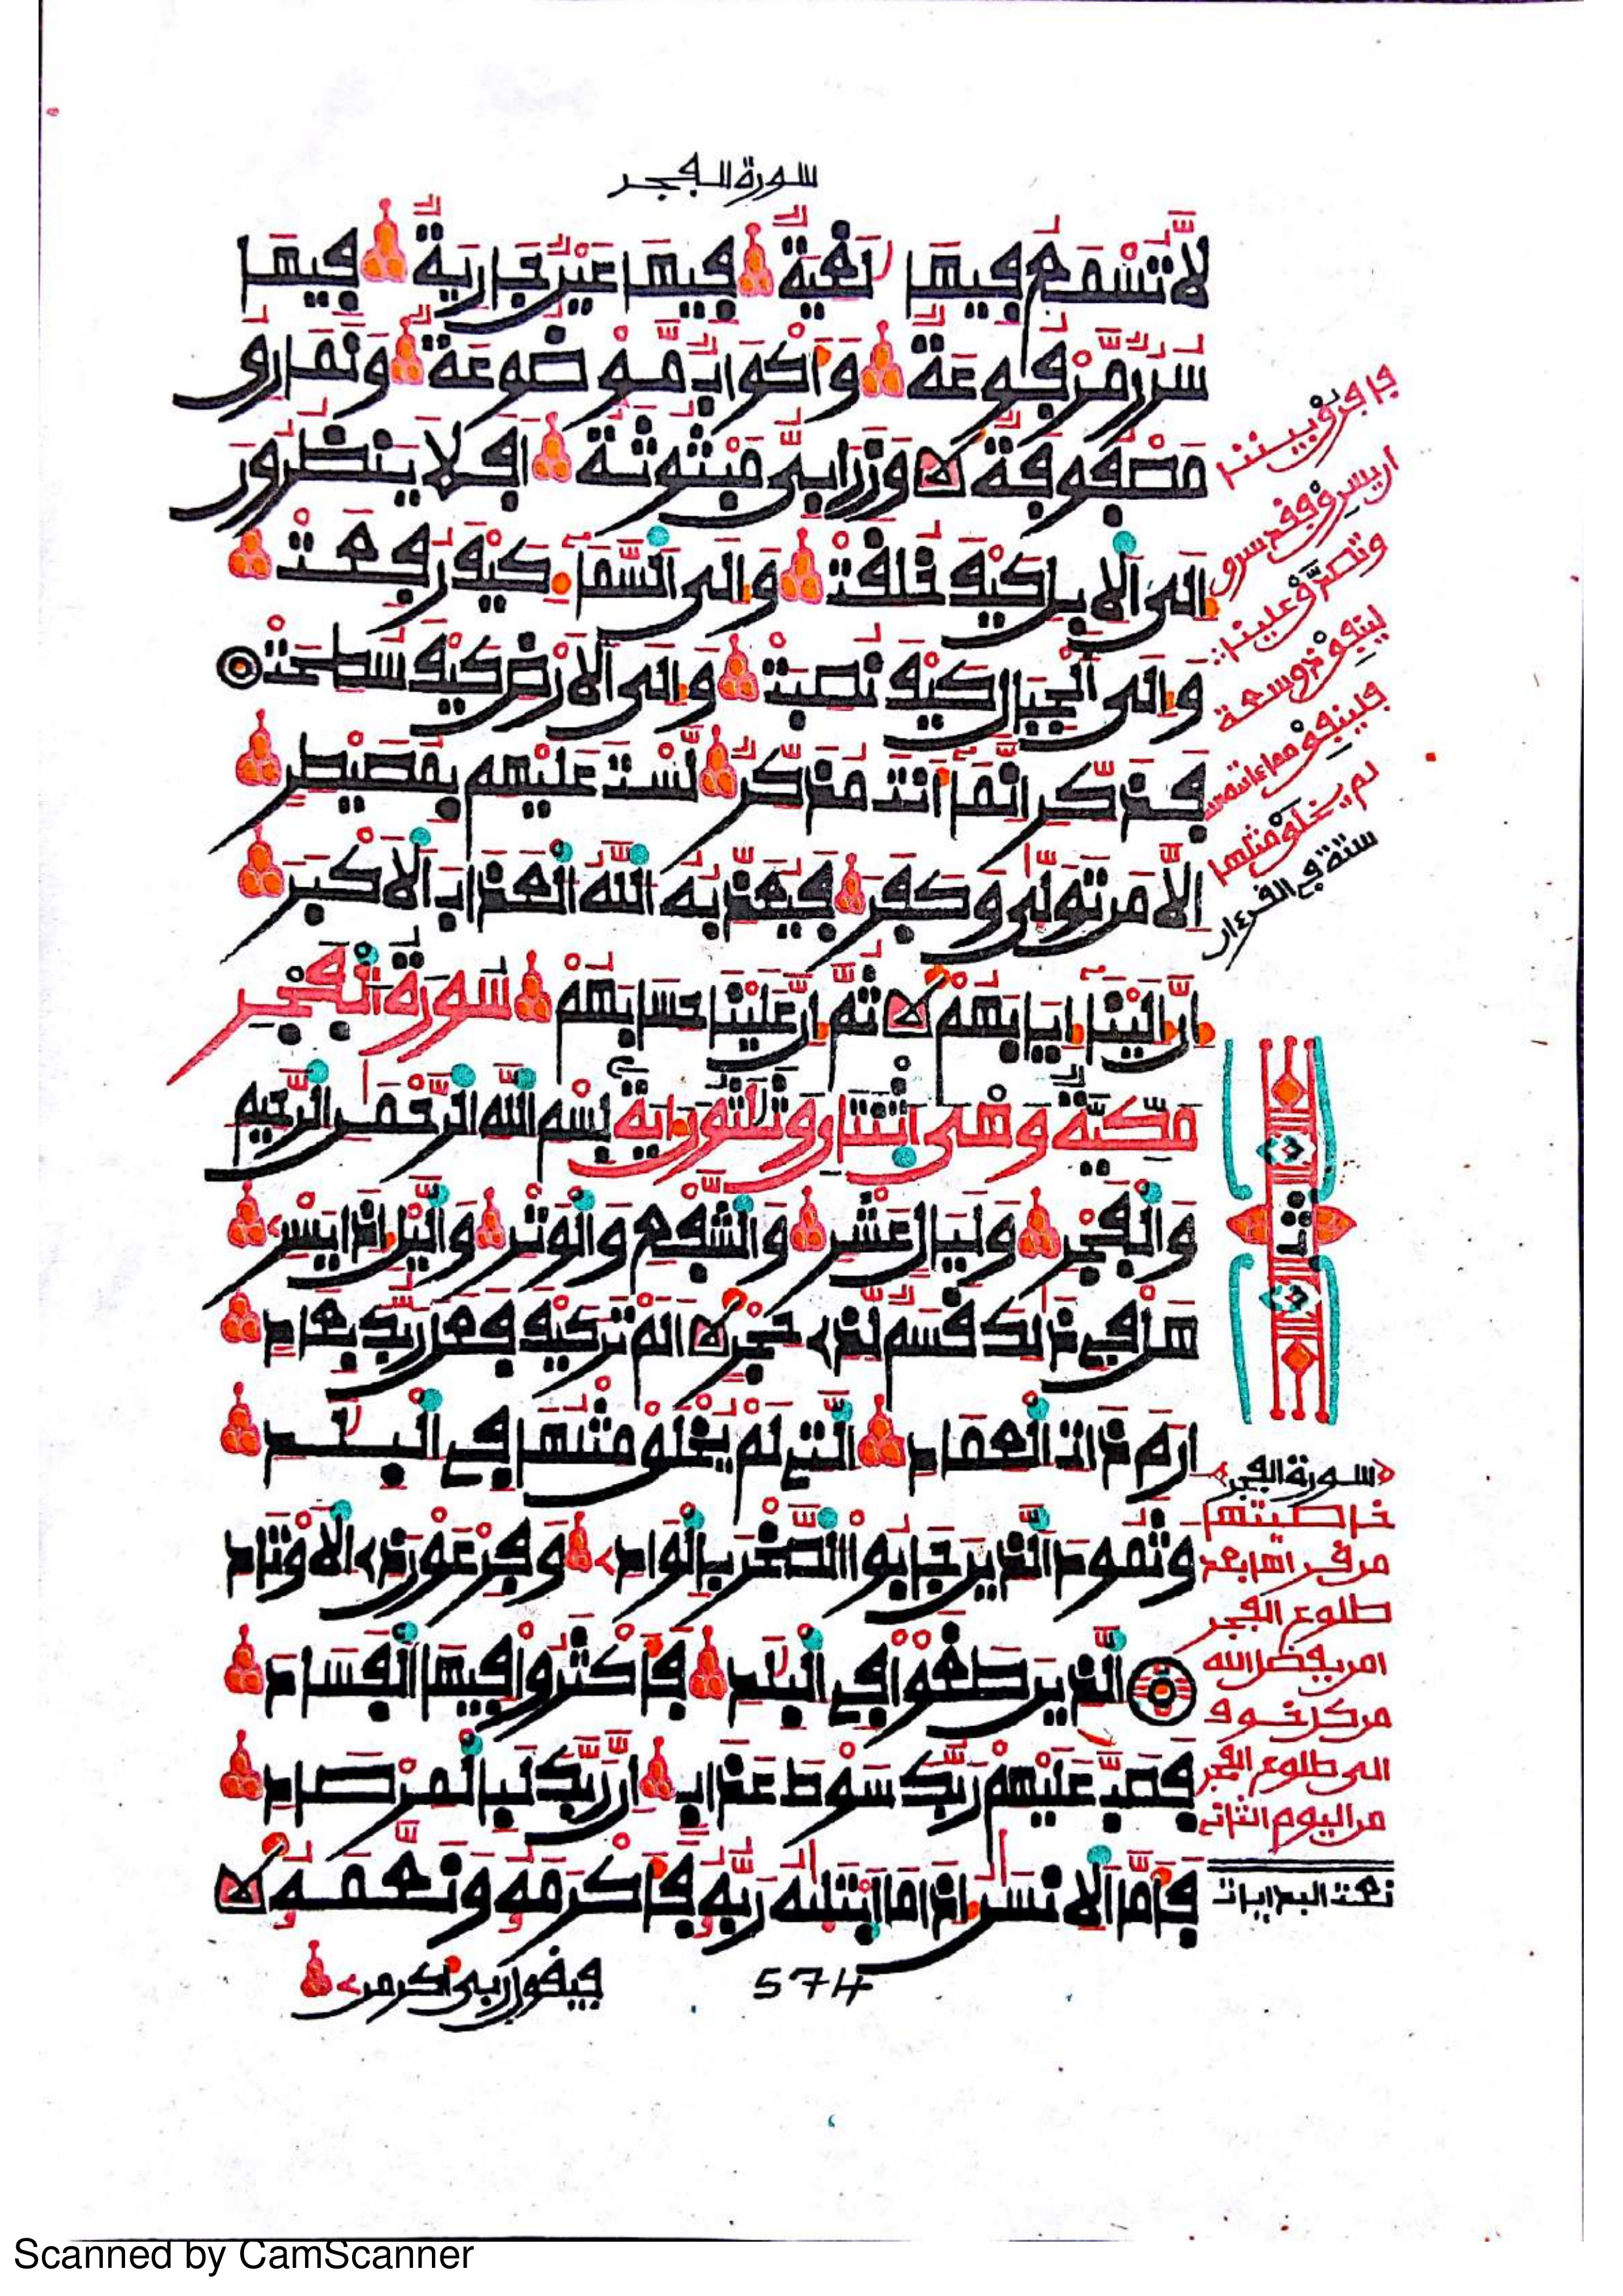 سورة الفجر
لَّا تُسْمَعُ فِيهَا لَٰغِيَةٌ فِيهَا عَيْنٌ جَارِيَةٌ فِيهَا
سُرُرٌ مَّرْفُوعَةٌ وَأَكْوَابٌ مَّوْضُوعَةٌ وَنَمَارِقُ
مَصْفُوفَةٌ وَزَرَابِيُّ مَبْثُوثَةٌ اَفَلَا يَنظُرُونَ
إِلَى اَلْإِبِلِ كَيْفَ خُلِقَتْ وَإِلَى اَلسَّمَآءِ كَيْفَ رُفِعَتْ
وَإِلَى اَلْجِبَالِ كَيْفَ نُصِبَتْ وَإِلَى اَلْأَرْضِ كَيْفَ سُطِحَتْ
فَذَكِّرِ اِنَّمَآ أَنتَ مُذَكِّرٌ لَّسْتَ عَلَيْهِم بِمُصَيْطِرٍ
اِلَّا مَن تَوَلَّىٰ وَكَفَرَ فَيُعَذِّبُهُ اللَّهُ اُلْعَذَابَ اَلْأَكْبَرَ
إِنَّ إِلَيْنَآ إِيَابَهُمْ ثُمَّ إِنَّ عَلَيْنَا حِسَابَهُمْ سُورَةُ اُلْفَجْرِ
مَكِّيَّةٌ وَهْيَ اثْنَتَانِ وَثَلَٰثُونَ ءَايَةً بِسْمِ اِللَّهِ اِلرَّحْمَٰنِ اِلرَّحِيمِ
وَالْفَجْرِ وَلَيَالٍ عَشْرٍ وَالشَّفْعِ وَالْوَتْرِ وَالَّيْلِ إِذَا يَسْرِ
هَلْ فِي ذَٰلِكَ قَسَمٌ لِّذِي حِجْرٍ اَلَمْ تَرَ كَيْفَ فَعَلَ رَبُّكَ بِعَادٍ
اِرَمَ ذَاتِ اِلْعِمَادِ اِلَّتِي لَمْ يُخْلَقْ مِثْلُهَا فِي اِلْبِلَٰدِ
وَثَمُودَ اَلَّذِينَ جَابُوا اُلصَّخْرَ بِالْوَادِ وَفِرْعَوْنَ ذِي اِلْأَوْتَادِ
اِلَّذِينَ طَغَوْا فِي اِلْبِلَٰدِ فَأَكْثَرُوا فِيهَا اَلْفَسَادَ
فَصَبَّ عَلَيْهِمْ رَبُّكَ سَوْطَ عَذَابٍ اِنَّ رَبَّكَ لَبِالْمِرْصَادِ
فَأَمَّا اَلْإِنسَٰنُ إِذَا مَا اَبْتَلَىٰهُ رَبُّهُ فَأَكْرَمَهُ وَنَعَّمَهُ
فيقول ربي أكرمن
574
لينفق ذو سعة
فلينفق مما ءاته الله
لم يخلق مثلها
ستة في القرءان
ثمن
سورة الفجر
خاصيتها
من قرأها بعد
طلوع الفجر
امن بفضل الله
من كل خوف
الى طلوع الفجر
من اليوم الثاني
نعت البدايات
Scanned by CamScanner